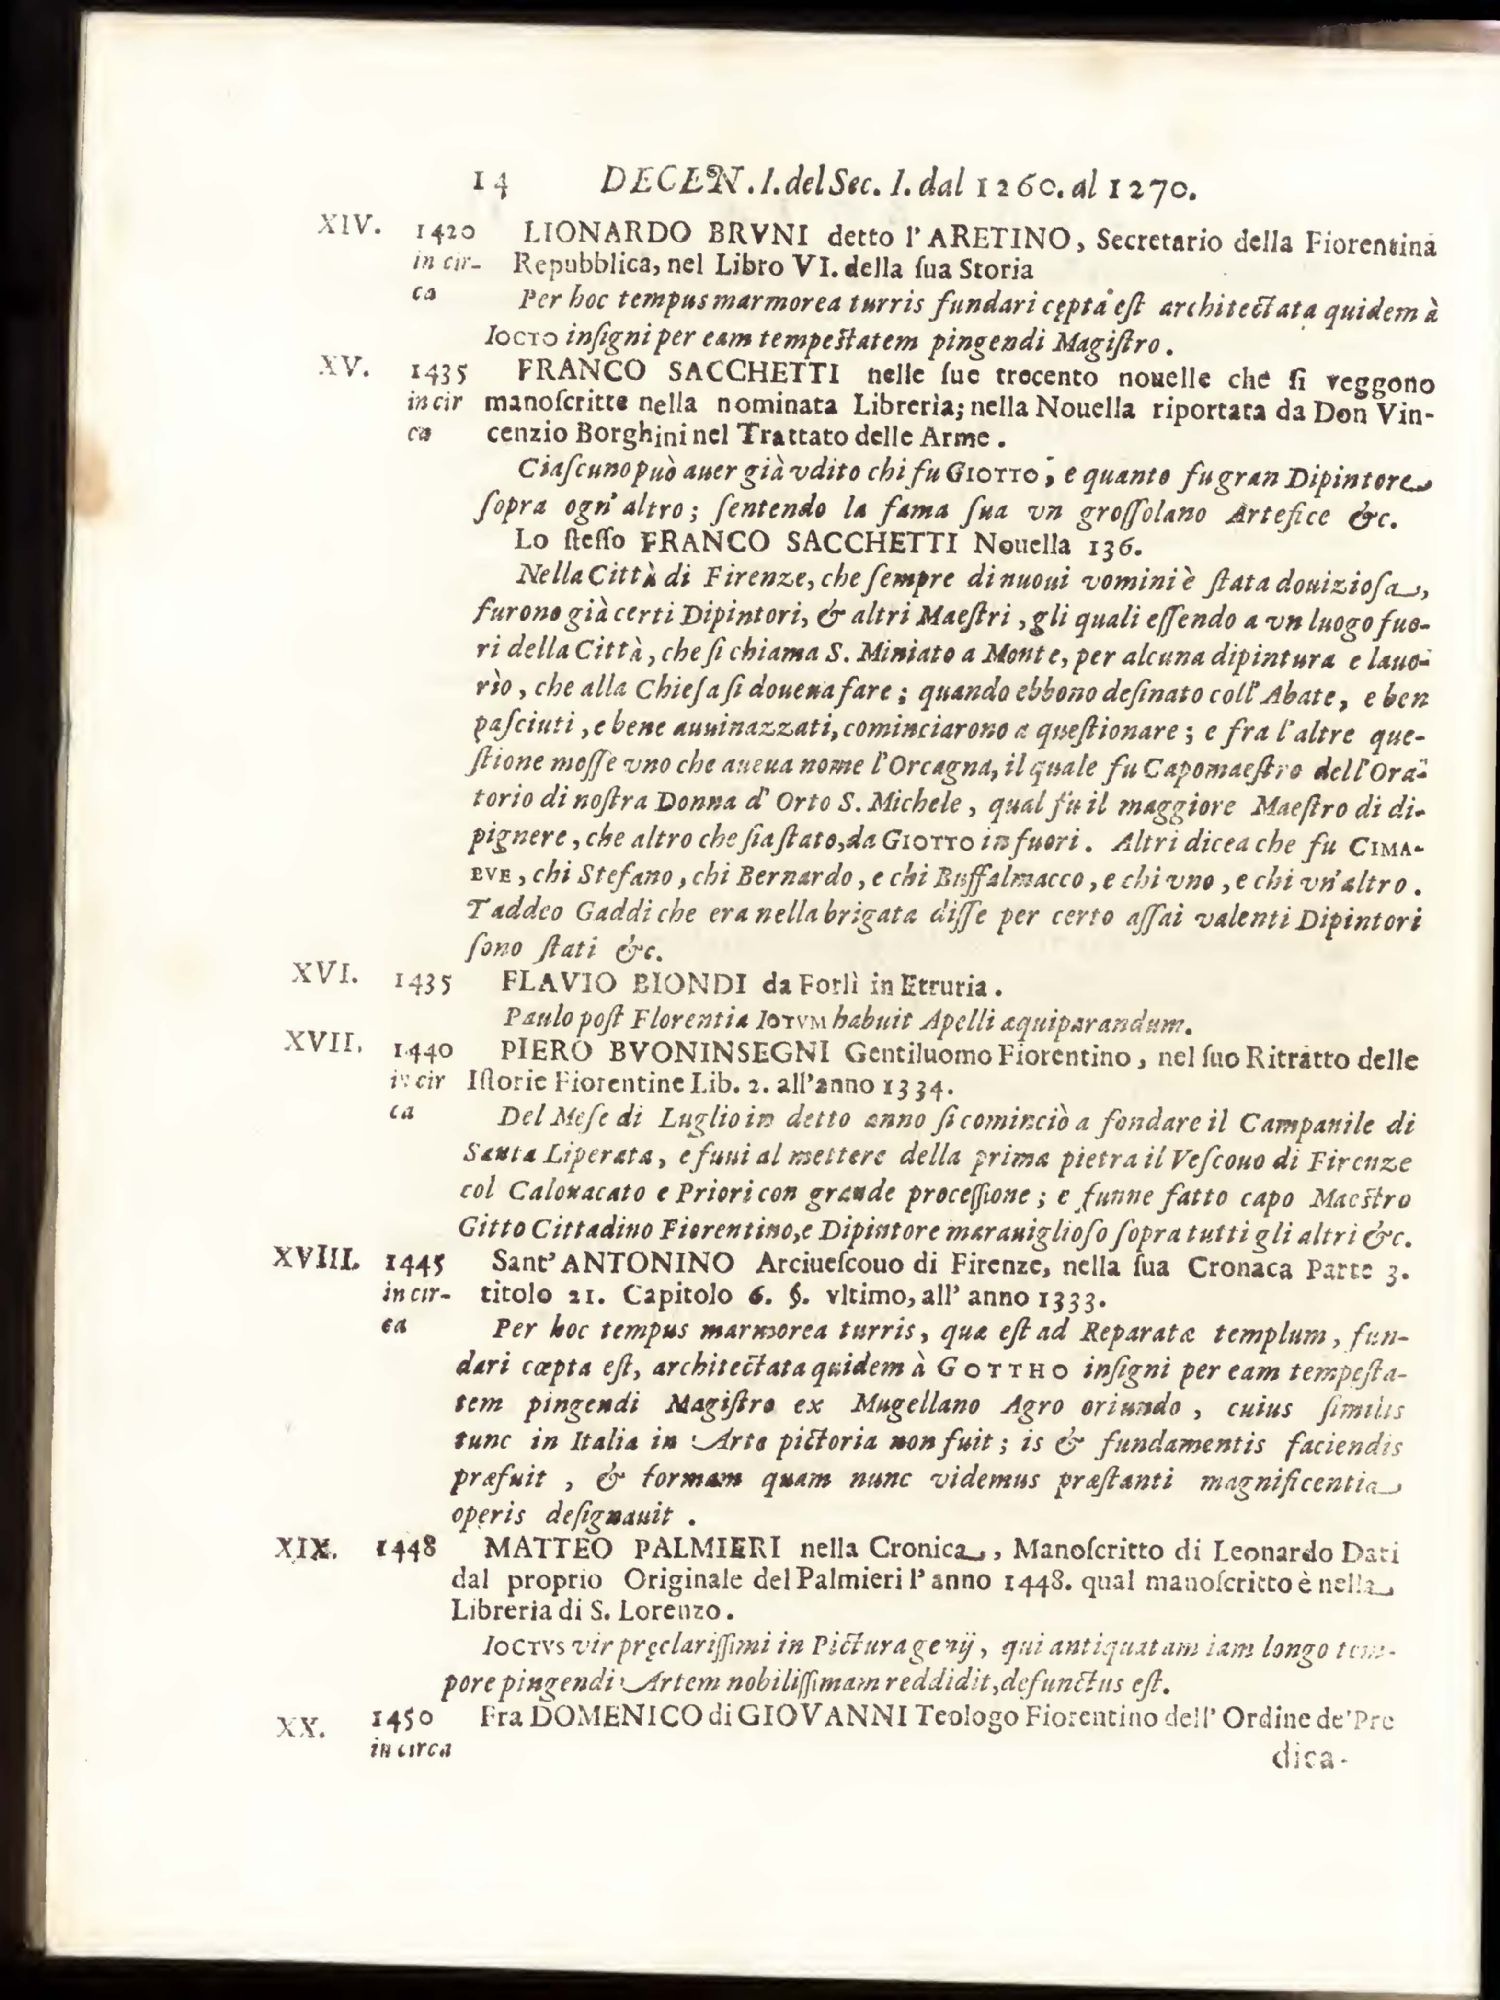 14 DECEN. I. del Sec. I. dal 1260. al 1270.
XIV. 1420 LIONARDO BRVNI detto l'ARETINO, Secretario della Fiorentina
in cir- Repubblica, nel Libro VI. della ſua Storia
ca Per hoc tempus marmorea turris fundari cępta eſt architectata quidem à
IOCTO inſigni per eam tempestatem pingendi Magiſtro.
XV. 1435 FRANCO SACCHETTI nelle ſue trecento nouelle che ſi veggono
in cir manoſcritte nella nominata Libreria; nella Nouella riportata da Don Vin-
ca cenzio Borghini nel Trattato delle Arme.
Ciaſcuno può auer già vdito chi fu GIOTTO, e quanto fu gran Dipintore
ſopra ogn' altro; ſentendo la fama ſua vn groſſolano Artefice &c.
Lo ſteſſo FRANCO SACCHETTI Nouella 136.
Nella Città di Firenze, che ſempre di nuoui vomini è ſtata douizioſa,
furono già certi Dipintori, & altri Maeſtri, gli quali eſſendo a vn luogo fuo-
ri della Città, che ſi chiama S. Miniato a Monte, per alcuna dipintura e lauo-
rìo, che alla Chieſa ſi doueua fare; quando ebbono deſinato coll' Abate, e ben
paſciuti, e bene auuinazzati, cominciarono a queſtionare; e fra l'altre que-
ſtione moſſe vno che aueua nome l'Orcagna, il quale fu Capomaeſtro dell'Ora-
torio di noſtra Donna d' Orto S. Michele, qual fu il maggiore Maeſtro di di-
pignere, che altro che ſia ſtato, da GIOTTO in fuori. Altri dicea che fu CIMA-
BVE, chi Stefano, chi Bernardo, e chi Buffalmacco, e chi vno, e chi vn'altro.
Taddeo Gaddi che era nella brigata diſſe per certo aſſai valenti Dipintori
ſono ſtati &c.
XVI. 1435 FLAVIO BIONDI da Forlì in Etruria.
Paulo poſt Florentia IOTVM habuit Apelli æquiparandum.
XVII. 1440 PIERO BVONINSEGNI Gentiluomo Fiorentino, nel ſuo Ritratto delle
in cir Iſtorie Fiorentine Lib. 2. all'anno 1334.
ca Del Meſe di Luglio in detto anno ſi cominciò a fondare il Campanile di
Santa Liperata, e fuui al mettere della prima pietra il Veſcouo di Firenze
col Calonacato e Priori con grande proceſſione; e funne fatto capo Maeſtro
Gitto Cittadino Fiorentino, e Dipintore marauiglioſo ſopra tutti gli altri &c.
XVIII. 1445 Sant' ANTONINO Arciueſcouo di Firenze, nella ſua Cronaca Parte 3.
in cir- titolo 21. Capitolo 6. §. vltimo, all' anno 1333.
ca Per hoc tempus marmorea turris, quæ eſt ad Reparatæ templum, fun-
dari cœpta eſt, architectata quidem à GOTTHO inſigni per eam tempeſta-
tem pingendi Magiſtro ex Mugellano Agro oriundo, cuius ſimilis
tunc in Italia in Arte pictoria non fuit; is & fundamentis faciendis
præfuit, & formam quam nunc videmus præſtanti magnificentia
operis deſignauit.
XIX. 1448 MATTEO PALMIERI nella Cronica, Manoſcritto di Leonardo Dati
dal proprio Originale del Palmieri l'anno 1448. qual manoſcritto è nella
Libreria di S. Lorenzo.
IOCTVS vir pręclariſſimi in Pictura genij, qui antiquatam iam longo tem-
pore pingendi Artem nobiliſſimam reddidit, defunctus eſt.
XX. 1450 Fra DOMENICO di GIOVANNI Teologo Fiorentino dell' Ordine de' Pre
in circa dica-